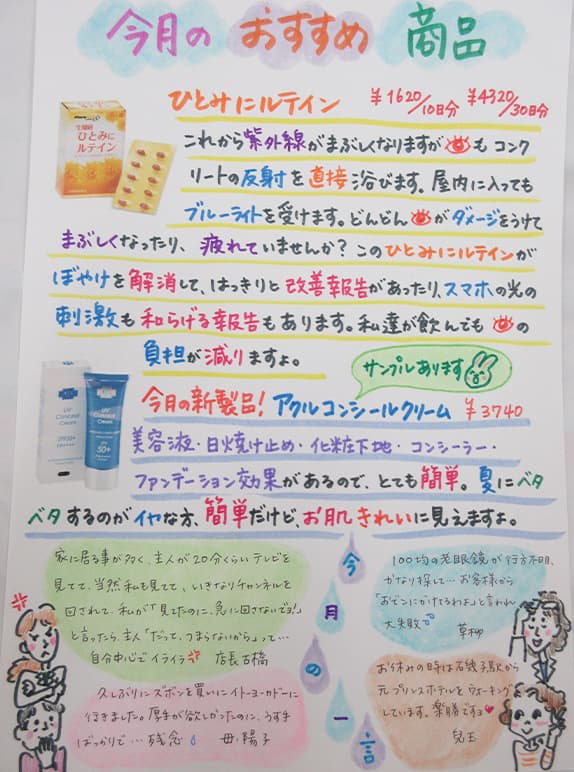 今月の おすすめ 商品
ひとみにルテイン ¥1620/10日分 ¥4320/30日分
ひとみに
ルテイン
これから紫外線がまぶしくなりますが も コンク
リートの反射を直接浴びます。屋内に入っても
ブルーライトを受けます。どんどん がダメージをうけて
まぶしくなったり、疲れていませんか？このひとみにルテインが
ぼやけを解消して、はっきりと改善報告があったり、スマホの光の
刺激も和らげる報告もあります。私達が飲んでも の
負担が減りますよ。
サンプルあります
今月の新製品！アクルコンシールクリーム ¥3740
UV
Conceal
Cream
SPF50+
UV
Conceal
Cream
SPF
50+
美容液・日焼け止め・化粧下地・コンシーラー・
ファンデーション効果があるので、とても簡単。夏にベタ
ベタするのがイヤな方、簡単だけど、お肌きれいに見えますよ。
今月の一言
家に居る事が多く、主人が20分くらいテレビを
見てて、当然私も見てて、いきなりチャンネルを
回されて、私が「見てたのに、急に回さないでヨ!」
と言ったら、主人「だって、つまらないから」って…
自分中心でイライラ 店長古橋
100均の老眼鏡が行方不明、
かなり探して…お客様から
「おでこにかけてるわよ」と言われ
大失敗 草柳
久しぶりにズボンを買いにイトーヨーカドーに
行きました。厚手が欲しかったのに、うす手
ばっかりで…残念 母・陽子
お休みの時は石綫子駅から
元プリンスホテルをウォーキング
しています。楽勝ですョ
兒玉